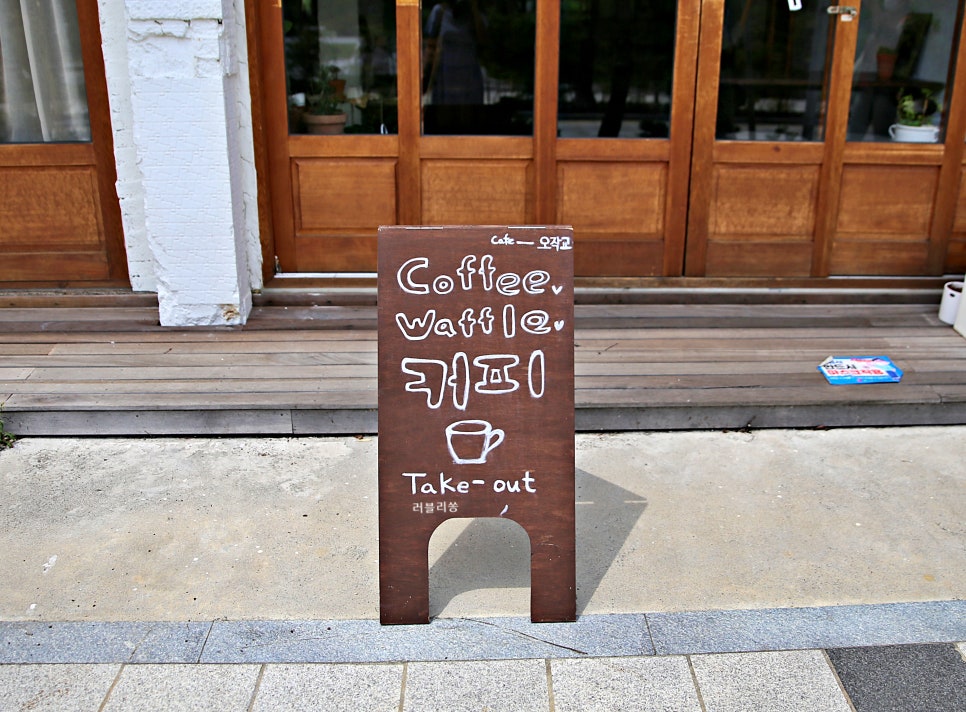 Cafe — 오작교
Coffee
Waffle
커피
Take-out
러블리쏭